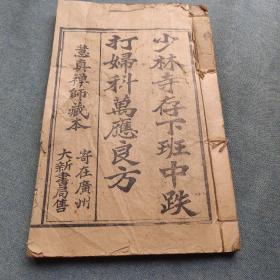 少林寺存下班中跌
打婦科萬應良方
慧真禪師藏本
寄在廣州
大新書局售